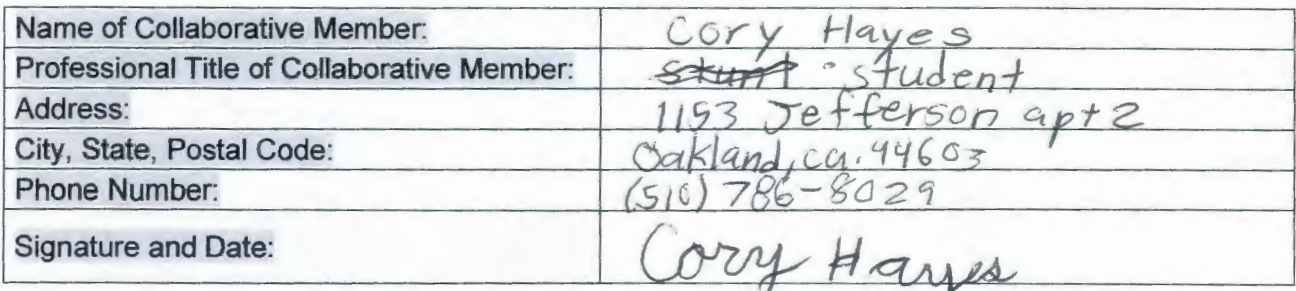 Name of Collaborative Member: Cory Hayes
Professional Title of Collaborative Member: student
Address: 1153 Jefferson apt 2
City, State, Postal Code: Oakland, ca. 94603
Phone Number: (510) 786-8029
Signature and Date: Cory Hayes